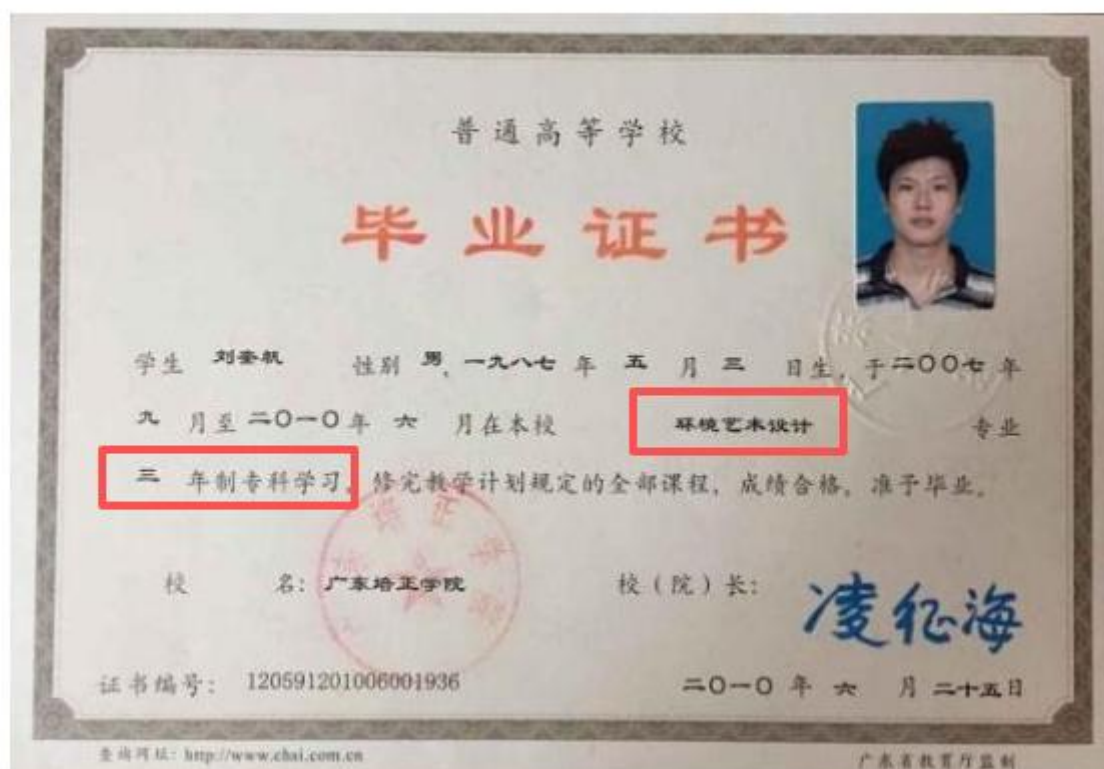 普通高等学校
毕业证书
学生 刘奎帆 性别 男, 一九八七 年 五 月 三 日生, 于二〇〇七 年
九 月至 二〇一〇 年 六 月在本校 环境艺术设计 专业
三 年制专科学习, 修完教学计划规定的全部课程, 成绩合格, 准予毕业。
校 名: 广东培正学院 校(院)长: 凌征海
证书编号: 120591201006001936 二〇一〇 年 六 月 二十五日
查询网址: http://www.chsi.com.cn 广东省教育厅监制